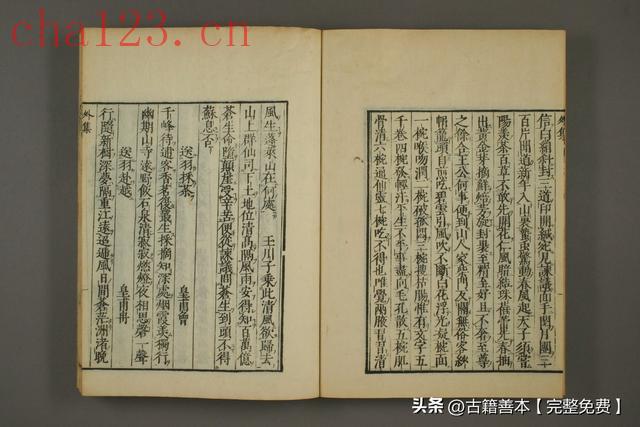 cha123.cn
外集
信白絹斜封三道印開緘宛見諫議面手閱月團三
百片聞道新年入山裏蟄蟲驚動春風起天子須嘗
陽羨茶百草不敢先開花仁風暗結珠先春抽
出黃金芽摘鮮焙芳旋封裹至精至好且不奢至尊
之餘合王公何事便到山人家柴門反關無俗客紗
帽籠頭自煎吃碧雲引風吹不斷白花浮光凝椀面
一椀喉吻潤二椀破孤悶三椀搜枯腸惟有文字五
千卷四椀發輕汗平生不平事盡向毛孔散五椀肌
骨清六椀通仙靈七椀吃不得也唯覺兩腋習習清
風生蓬萊山在何處玉川子乘此清風欲歸去
山上群仙司下土地位清高隔風雨安得知百萬億
蒼生命墮顛崖受辛苦便從諫議問蒼生到頭不得
蘇息否
送羽採茶 皇甫曾
千峰待逋客香茗復叢生採摘知深處烟霞羨獨行
幽期山寺遠野飯石泉清寂寂燃燈夜相思磬一聲
送羽赴越 皇甫冉
行隨新樹深夢隔重江遠迢遞風日間蒼茫洲渚晚
外集
头条 @古籍善本【完整免费】